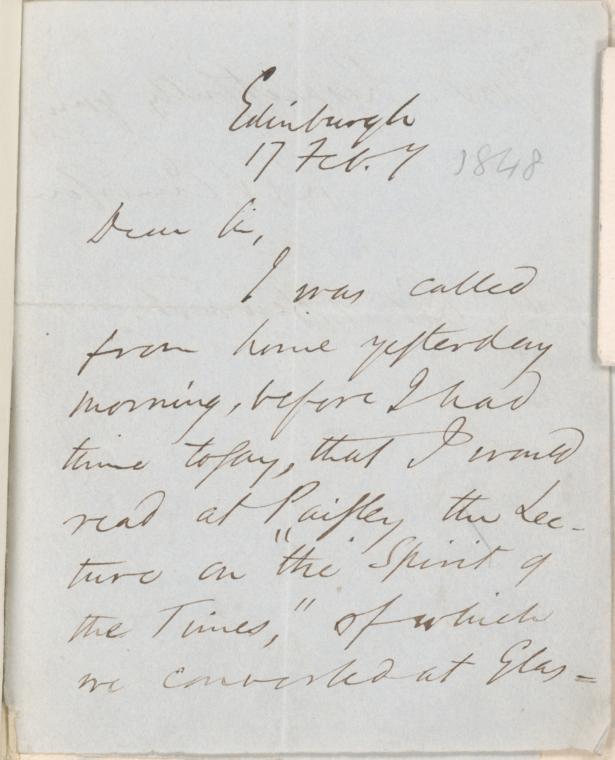 Edinburgh
17 Feb. 7
1848
Dear Sir,
I was called
from home yesterday
morning, before I had
time to say, that I would
read at Paisley the Lec-
ture on "the Spirit of
the Times," of which
we conversed at Glas=